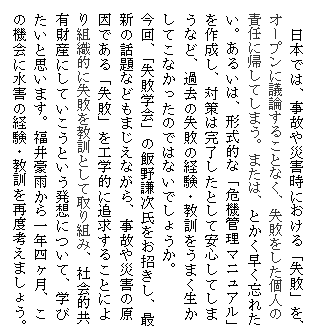 日本では、事故や災害時における「失敗」を、
オープンに議論することなく、失敗をした個人の
責任に帰してしまう。または、とかく早く忘れた
い。あるいは、形式的な「危機管理マニュアル」
を作成し、対策は完了したとして安心してしま
うなど、過去の失敗の経験・教訓をうまく生か
してこなかったのではないでしょうか。
今回、「失敗学会」の飯野謙次氏をお招きし、最
新の話題などもまじえながら、事故や災害の原
因である「失敗」を工学的に追求することによ
り組織的に失敗を教訓として取り組み、社会的共
有財産にしていこうという発想について、学び
たいと思います。福井豪雨から一年四ヶ月、こ
の機会に水害の経験・教訓を再度考えましょう。